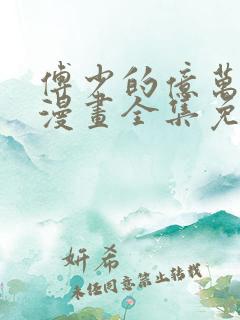 傅少的億萬
漫畫全集免
妍希
未經同意禁止轉載